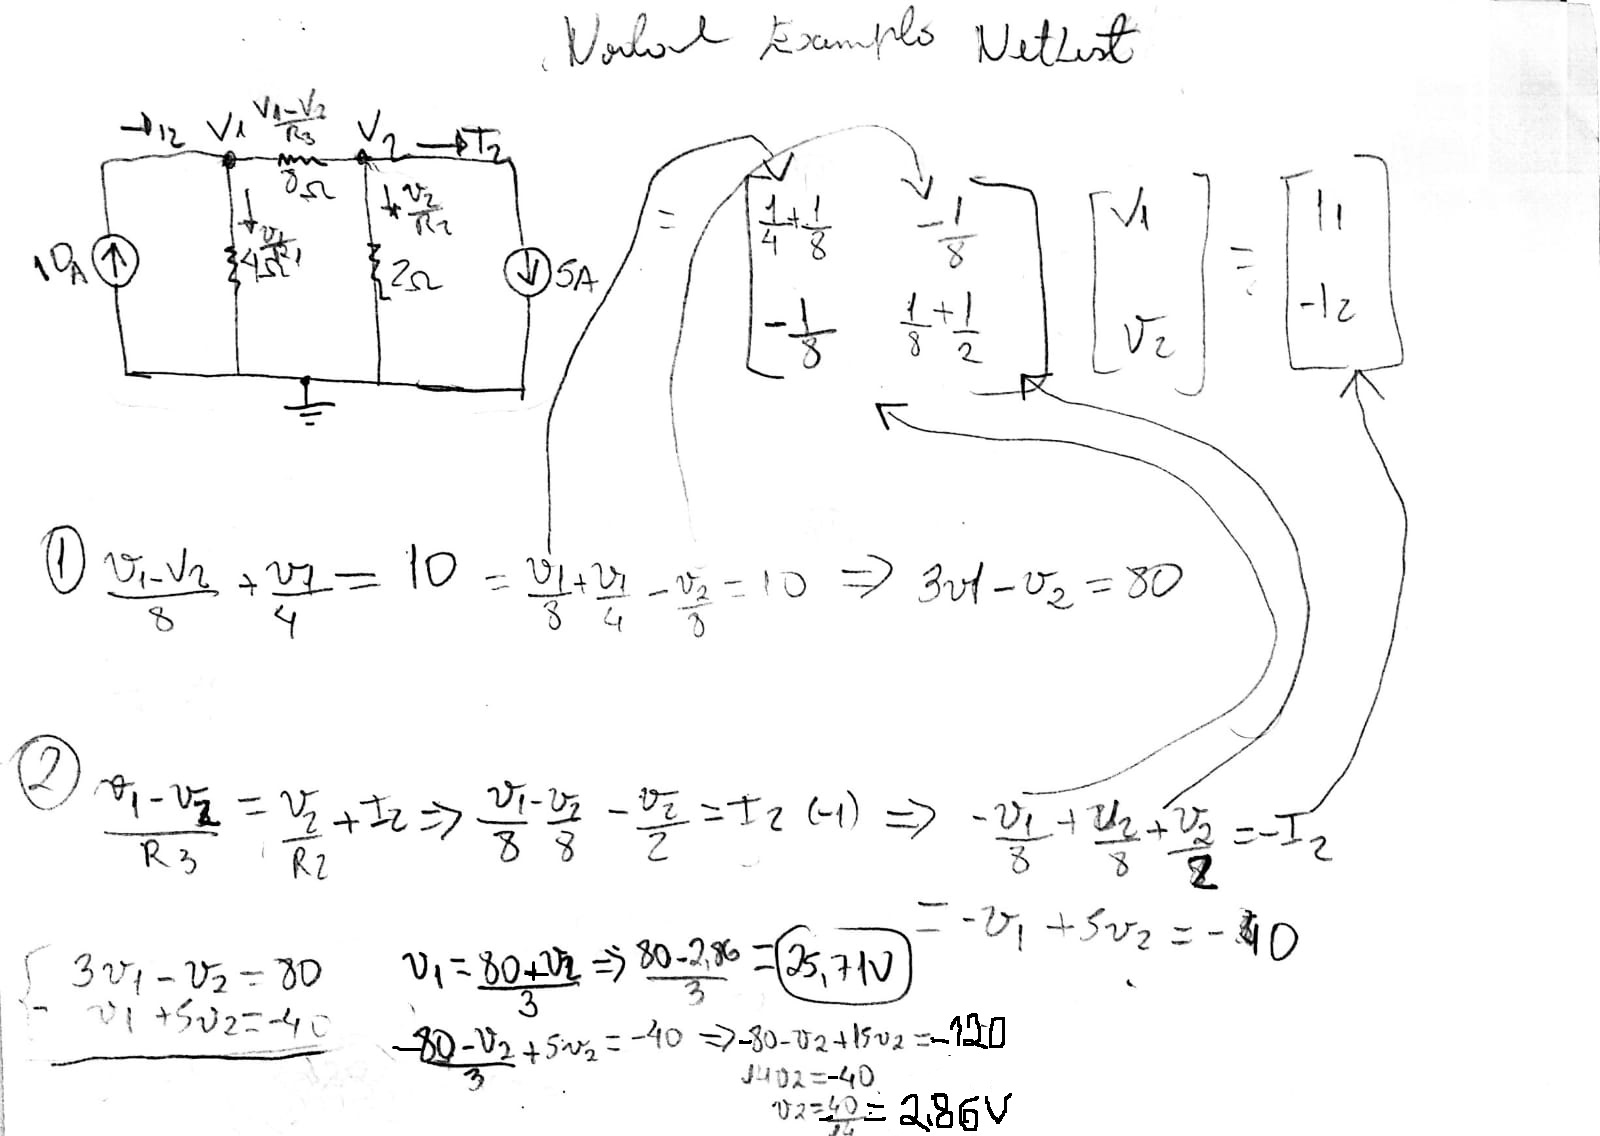 Nodal Example NetList
→ I2 V1 V1-V2/R3 V2 → I2
8Ω
↓ v1/R1 ↓ v2/R2
10A 4Ω 2Ω 5A
= [1/4+1/8 -1/8] [V1] = [I1]
[-1/8 1/8+1/2] [v2] [-I2]
① v1-v2/8 + v1/4 = 10 = v1/8 + v1/4 - v2/8 = 10 ⇒ 3v1 - v2 = 80
② v1-v2/R3 = v2/R2 + I2 ⇒ v1/8 - v2/8 - v2/2 = I2 (-1) ⇒ -v1/8 + v2/8 + v2/2 = -I2
= -v1 + 5v2 = -40
{ 3v1 - v2 = 80
-v1 + 5v2 = -40
v1 = 80+v2/3 ⇒ 80-2,86/3 = 25,71V
-80-v2/3 + 5v2 = -40 ⇒ -80-v2+15v2 = -120
14v2 = -40
v2 = 40/14 = 2.86V